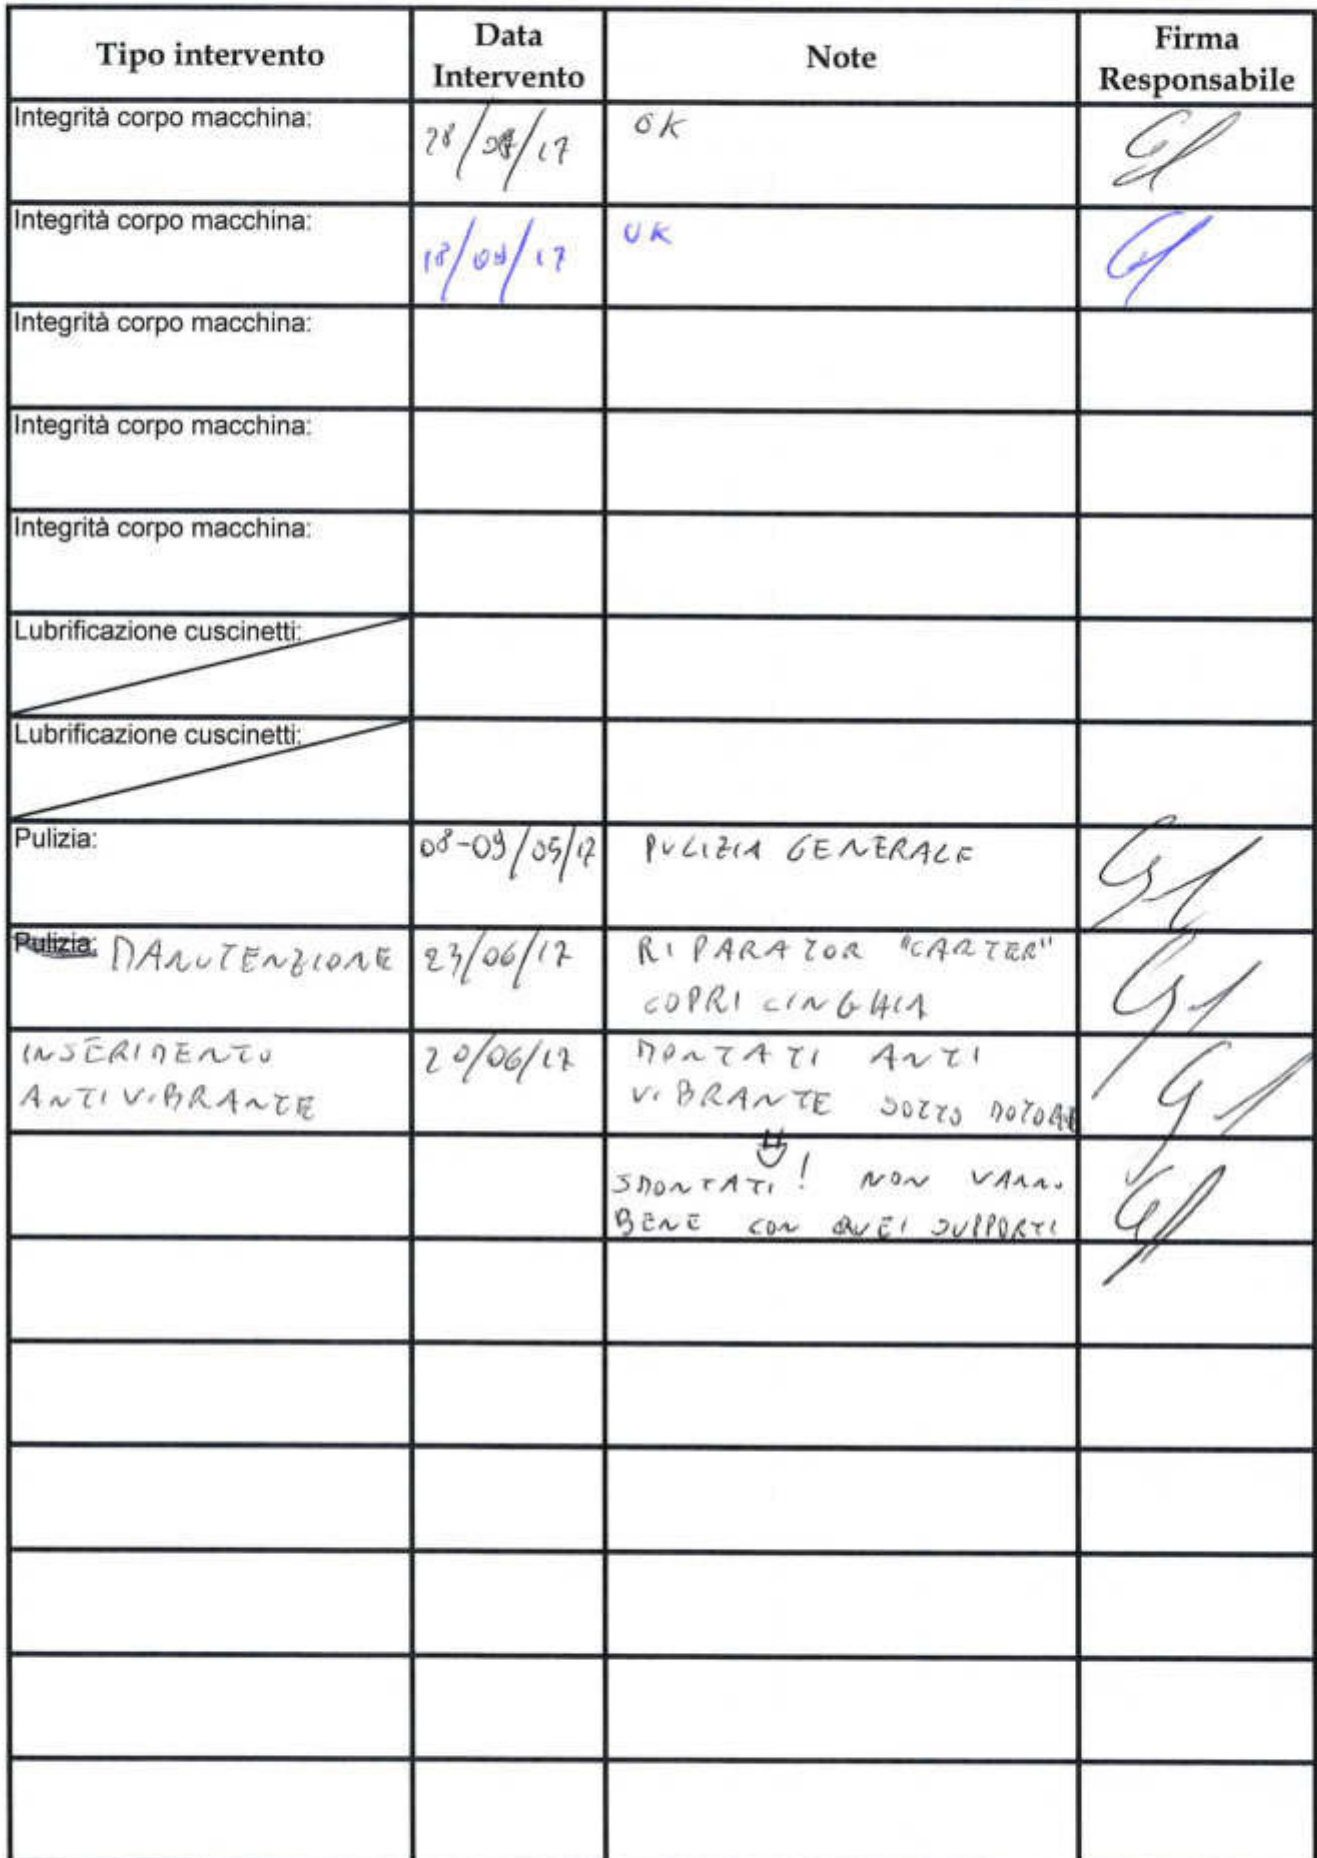 Tipo intervento
Data
Intervento
Note
Firma
Responsabile
Integrità corpo macchina:
28/ /17
OK
Integrità corpo macchina:
18/09/17
OK
Integrità corpo macchina:
Integrità corpo macchina:
Integrità corpo macchina:
Lubrificazione cuscinetti:
Lubrificazione cuscinetti:
Pulizia:
08-09/05/17
PULIZIA GENERALE
Pulizia: MANUTENZIONE
23/06/17
RIPARATOR "CARTER"
COPRI CINGHIA
INSERIMENTO
ANTIVIBRANTE
20/06/17
MONTATI ANTI
VIBRANTE SOTTO MOTORE
SMONTATI! NON VANNO
BENE CON QUEI SUPPORTI